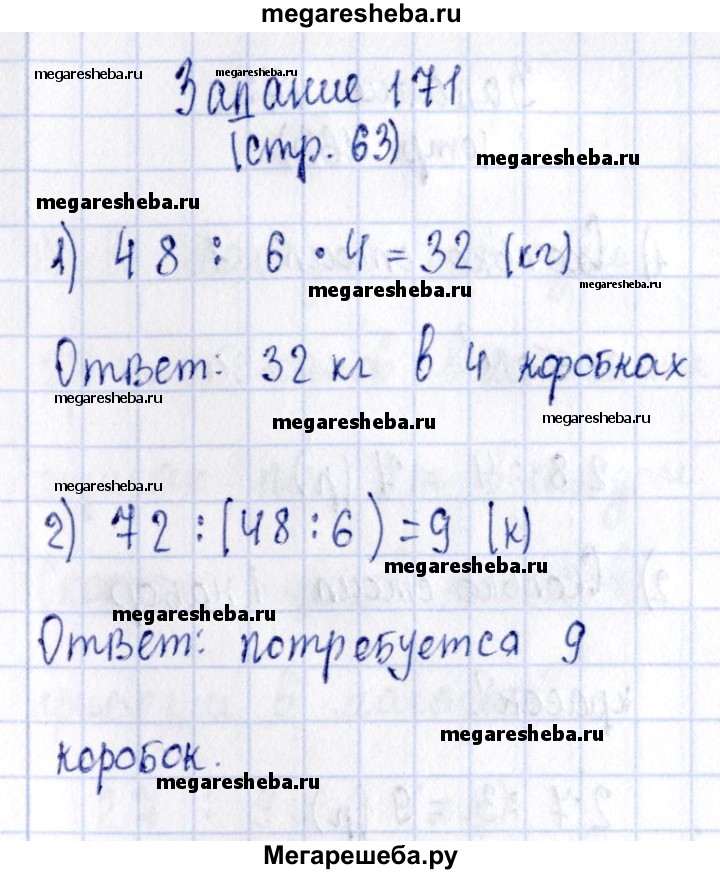 megaresheba.ru
megaresheba.ru
megaresheba.ru
Задание 171
(стр. 63)
megaresheba.ru
megaresheba.ru
1) 48 : 6 · 4 = 32 (кг)
megaresheba.ru
megaresheba.ru
Ответ: 32 кг в 4 коробках
megaresheba.ru
megaresheba.ru
megaresheba.ru
megaresheba.ru
2) 72 : (48 : 6) = 9 (к)
megaresheba.ru
megaresheba.ru
Ответ: потребуется 9
коробок.
megaresheba.ru
megaresheba.ru
Мегарешеба.ру